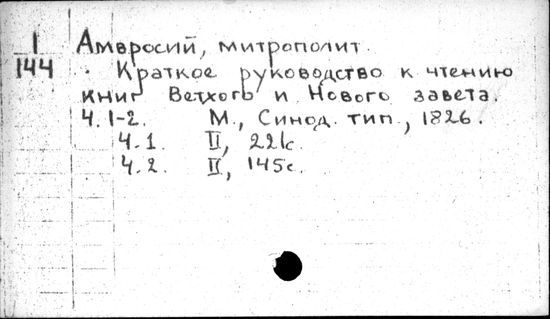 1
144
Амвросий, митрополит.
Краткое руководство к чтению
книг Ветхого и Нового завета.
Ч. 1-2. М., Синод. тип., 1826.
Ч. 1. II, 221с.
Ч. 2. II, 145с.